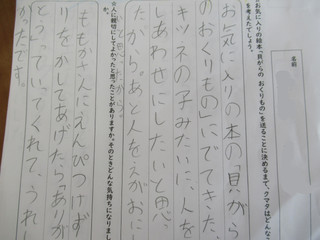 名前
お気に入りの絵本「貝がらの おくりもの」を送ることに決めるまで、クマタはどんなこ
を考えたでしょう。
お気に入りの本の「貝がら
のおくりもの」にでてきた、
キツネの子みたいに、人を
しあわせにしたいと思、
たから。あと人をえがおに
と思ったから。
☆人に親切にしてよかったと思ったことがありますか。そのときどんな気持ちになりまし
ももかさんにえんぴつけず
りをかしてあげたら「ありが
とう」っていってくれて、うれ
かったです。